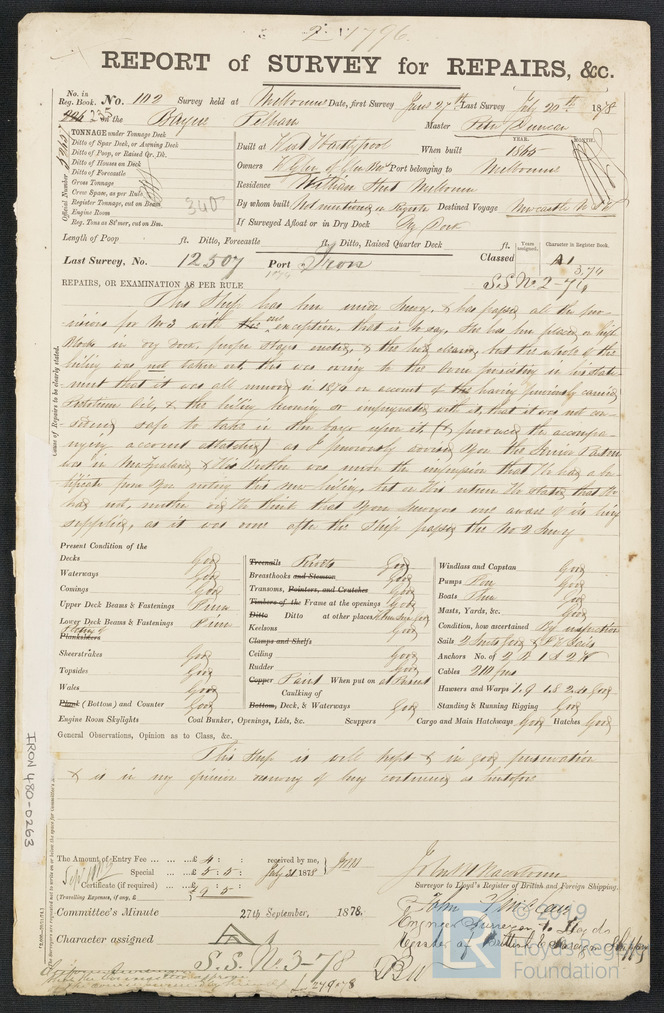 1796
REPORT of SURVEY for REPAIRS, &c.
No. in Reg. Book. No. 102 Survey held at Melbourne Date, first Survey June 27th Last Survey July 20th 1878
235 on the Barque Pelham Master Peter Duncan
TONNAGE under Tonnage Deck
Ditto of Spar Deck, or Awning Deck
Ditto of Poop, or Raised Qr. Dk.
Ditto of Houses on Deck
Ditto of Forecastle
Gross Tonnage
Crew Space, as per Rule
Register Tonnage, cut on Beam
Engine Room
Reg. Tons as St'mer, cut on Bm.
340
Official Number
YEAR. MONTH.
Built at West Hartlepool When built 1865
Owners Port belonging to Melbourne
Residence William Street Melbourne
By whom built Not mentioned in Register Destined Voyage Newcastle N S W
If Surveyed Afloat or in Dry Dock Dry Dock
Length of Poop ft. Ditto, Forecastle ft. Ditto, Raised Quarter Deck ft. Years assigned. Character in Register Book.
Last Survey, No. 12507 Port Iron Classed A1
3,74
REPAIRS, OR EXAMINATION AS PER RULE S.S. No 2-74
This Ship has been under Survey, & has passed all the pro-
visions for No 3 with the one exception, that is to say, She has been placed on high
blocks in dry dock, proper stages erected, & the hull cleaned, but the whole of the
ceiling was not taken out, this was owing to the Owner persisting in his state-
ment that it was all renewed in 1874 on account of the having previously carried
Petroleum Oil, & the ceiling becoming so impregnated with it, that it was not con-
sidered safe to take in the cargo upon it, (& produced the accompa-
nying account attached) as I previously
was in New Zealand & His Brother was under the impression that He had a cer-
tificate from you noting this new ceiling, but on His return He states that He
had not, neither did He think that your Surveyors were aware of its being
supplied, as it was done after the Ship passed the No 2 Survey
Cause of Repairs to be clearly stated.
Present Condition of the
Decks Good
Waterways Good
Comings Good
Upper Deck Beams & Fastenings Firm
Lower Deck Beams & Fastenings Firm
Planksheers
Sheerstrakes Good
Topsides Good
Wales Good
Plank (Bottom) and Counter Good
Engine Room Skylights
Treenails Rivets Good
Breasthooks and Stemson Good
Transoms, Pointers, and Crutches Good
Timbers of the Frame at the openings Good
Ditto Ditto at other places
Keelsons Good
Clamps and Shelfs
Ceiling Good
Rudder Good
Copper Paint When put on at Present
Caulking of
Bottom, Deck, & Waterways Good
Coal Bunker, Openings, Lids, &c. Scuppers
Windlass and Capstan Good
Pumps Iron Good
Boats Good
Masts, Yards, &c. Good
Condition, how ascertained By inspection
Sails 2 Suits
Anchors No. of 2 B 1 S 2 K
Cables 210 fms
Hawsers and Warps Good
Standing & Running Rigging Good
Cargo and Main Hatchways Good Hatches Good
General Observations, Opinion as to Class, &c.
This Ship is well kept & in good preservation
& is in my opinion worthy of being continued as heretofore
The Amount of Entry Fee ... £ 4 : : received by me,
Special ... £ 5 : 5 : July 31 1878
Certificate (if required) ... £ 9 5 :
(Travelling Expenses, if any, £ )
Surveyor to Lloyd's Register of British and Foreign Shipping.
Committee's Minute 27th September, 1878.
Character assigned A1
S.S. No. 3-78
Engineer Surveyor to Lloyds
Register of British & Foreign Shipping
27 9 78
IRON 480-0263
© 2019
Lloyd's Register
Foundation